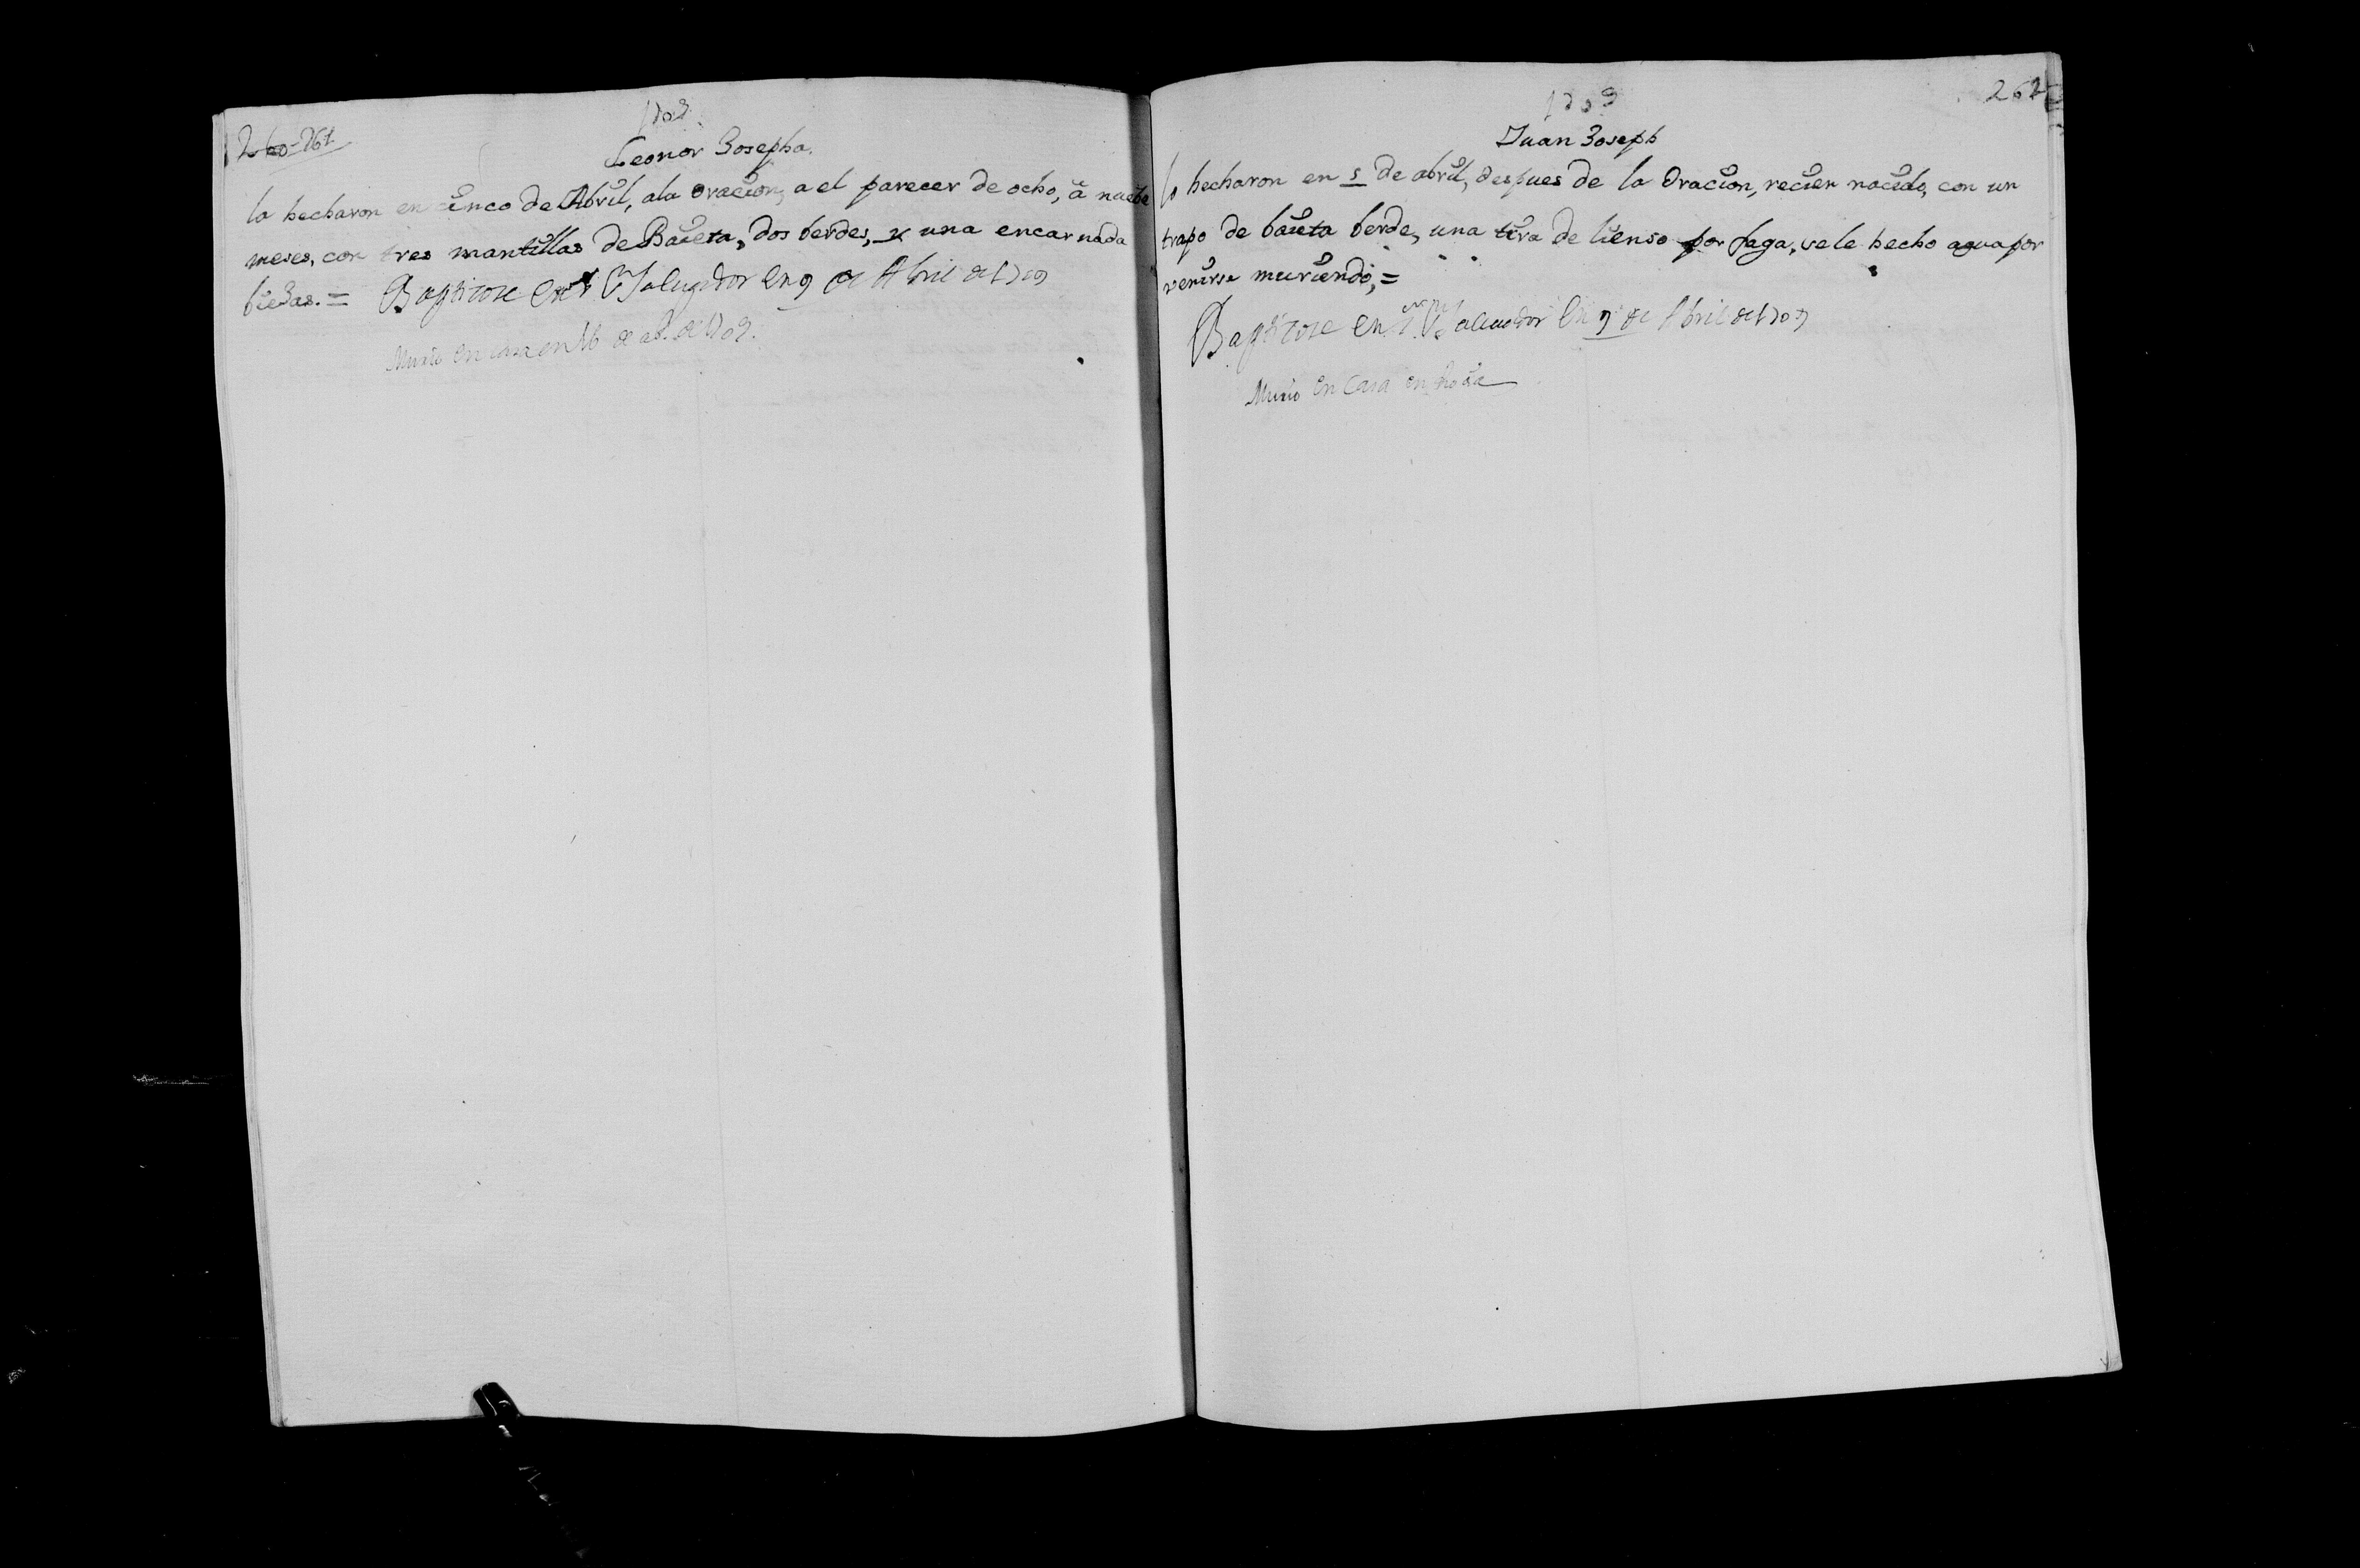 1709.
261
Leonor Josepha.
la hecharon en cinco de Abril, ala oracion, a el parecer de ocho, â nuebe
meses, con tres mantillas de Baieta, dos berdes, y una encarnada
biejas. = Baptizose en Salvador en 9 de Abril de 1709
Murio en casa en 16 de ab. de 1709.
1709
262
Juan Joseph
lo hecharon en 5 de abril, despues de la Oracion, recien nacido, con un
trapo de baieta berde, una tira de lienso por faga, se le hecho agua por
venirse muriendo, =
Baptizose en Salvador en 9 de Abril de 1709
Murio en Casa en